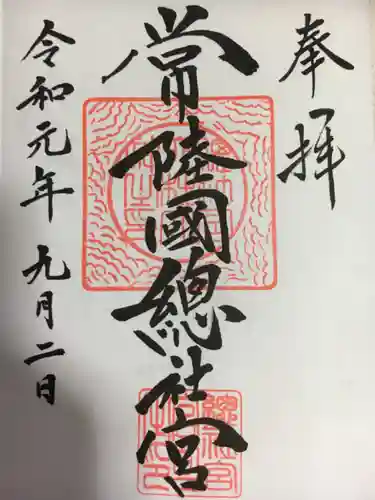 奉拝
常陸國總社宮
令和元年九月二日